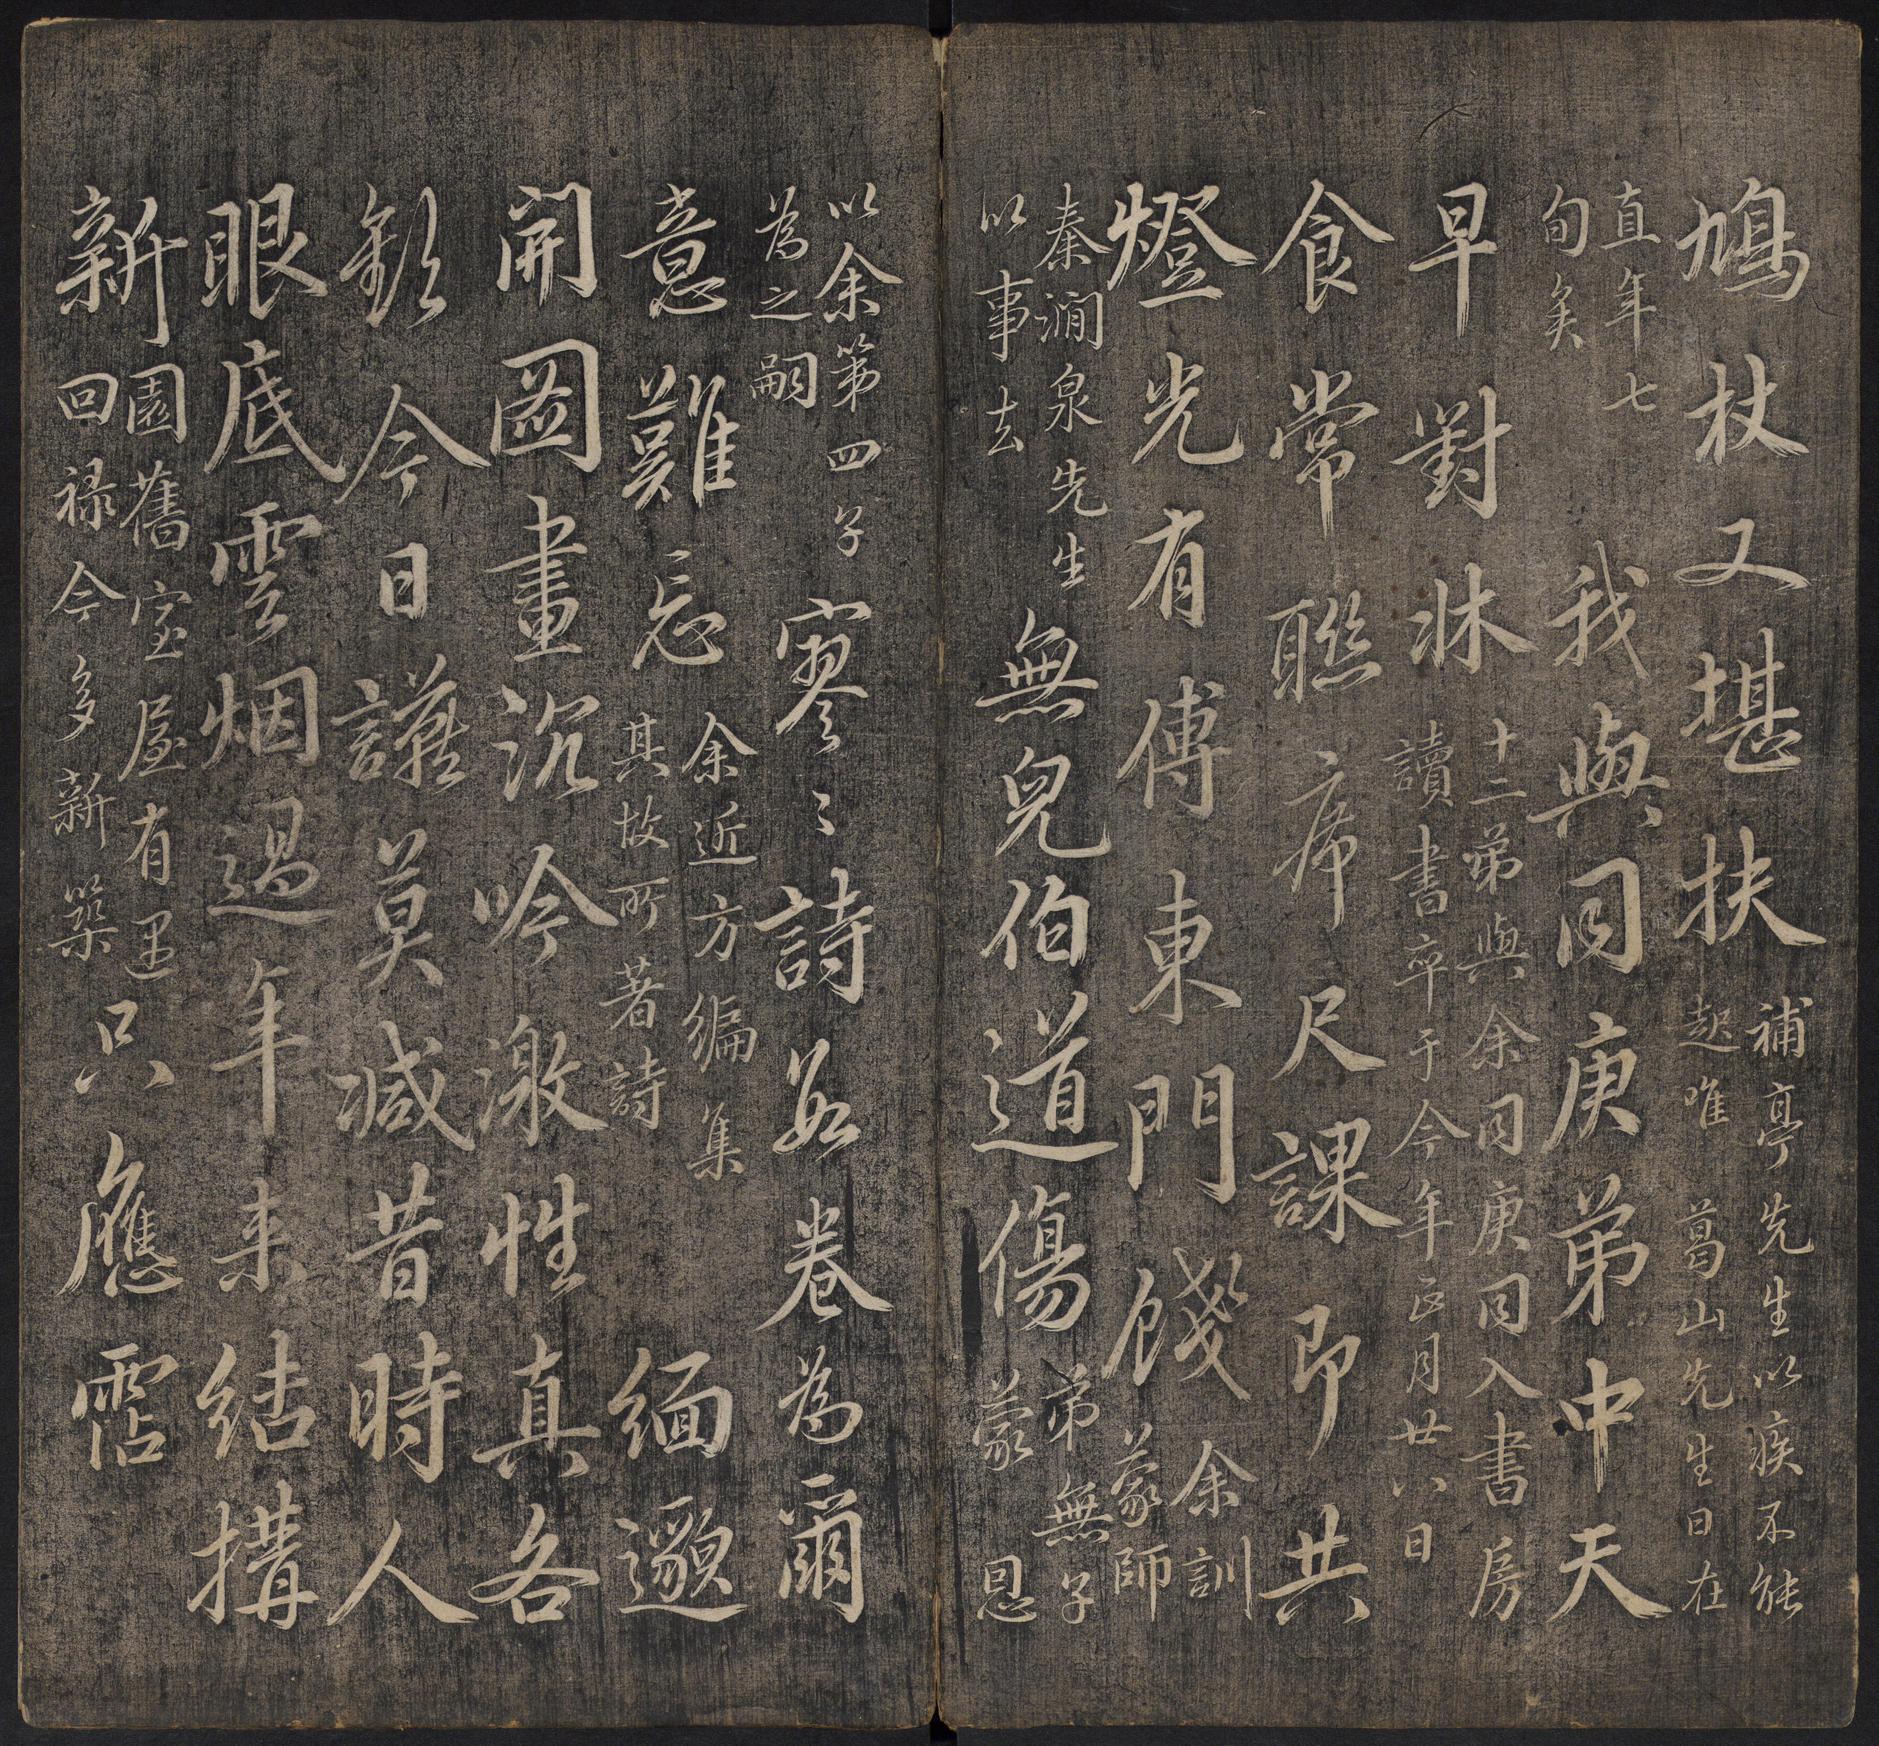 鳩杖又堪扶
補亭先生以疾不能
起唯葛山先生日在
直年七
旬矣
我與同庚弟中天
早對牀
十二弟與余同庚同入書房
讀書卒于今年正月廿八日
食常聯席尺課即共
燈光有傅東門餞
余訓
蒙師
秦澗泉先生
以事去
無兒伯道傷
弟無子
蒙恩
以余第四子
為之嗣
寥〻詩數卷為爾
意難忘
余近方編集
其故所著詩
緬邈
開圖畫沉吟激性真各
欽今日護莫減昔時人
眼底雲烟過年来結搆
新
園舊室屋有
回祿今多新築
只應霑